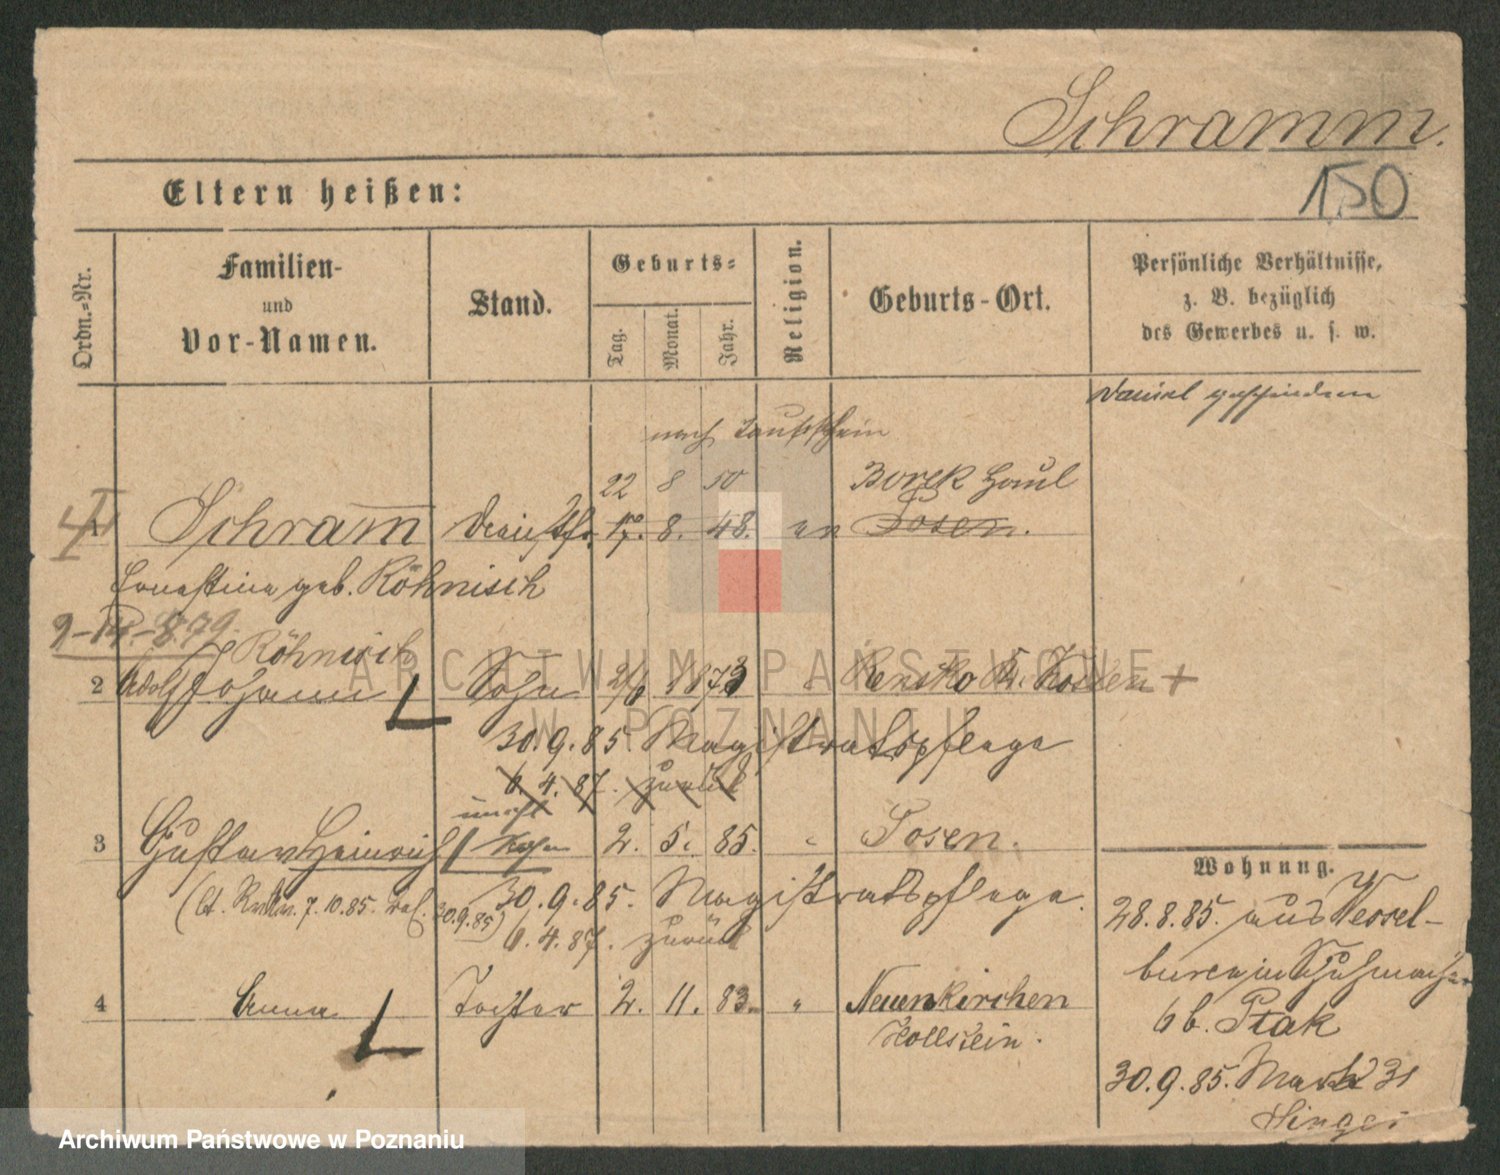 Schramm.
150
Eltern heißen:
Ordn.-Nr.
Familien- und Vor-Namen.
Stand.
Geburts-
Tag.
Monat.
Jahr.
Religion.
Geburts-Ort.
Persönliche Verhältnisse, z. B. bezüglich des Gewerbes u. s. w.
Daniel geschieden
nach Taufschein
22 8 50 Borek
1 Schram̅ 17. 8. 48. ev Posen.
Ernestine geb. Röhnisch
Röhnisch
2 Adolf Johann Sohn 1873 Kr. Kosten +
30.9.85 Magistratspflege
6.4.87. zurück
3 Gustav Heinrich Sohn 2. 5. 85. Posen.
30.9.85. Magistratspflege.
7.10.85. 30.9.85)
6.4.87. zurück
4 Anna Tochter 2. 11. 83. " Neuenkirchen
Hollstein.
Wohnung.
28.8.85. aus Wessel-
buren
b. Ptak
30.9.85. Markt 31
ARCHIWUM PAŃSTWOWE
W POZNANIU
Archiwum Państwowe w Poznaniu